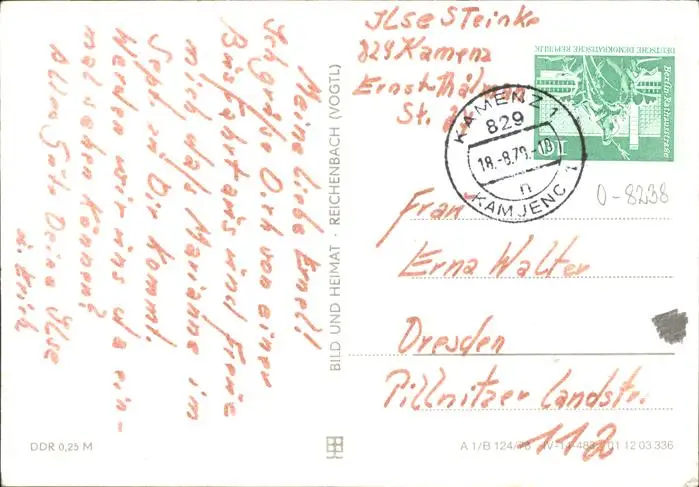 Meine Liebe Ernel!
Ich grüße Dich von einer
Busfahrt aus und freue
mich daß Marianne im
Sept. zu Dir kommt.
Werden wir uns da ein-
mal sehen können?
Alles Gute Deine Ilse
u. Erich
BILD UND HEIMAT · REICHENBACH (VOGTL)
DDR 0,25 M
Ilse Steinke
829 Kamenz
Ernst-Thälmann
St.
DEUTSCHE DEMOKRATISCHE REPUBLIK
Berlin-Rathausstraße
10
KAMENZ 1
829
18.-8.79.-18
n
KAMJENC 1
0-8238
Frau
Erna Walter
Dresden
Pillnitzer Landstr.
112
A 1/B 124/78 IV-14-483 01 12 03 336